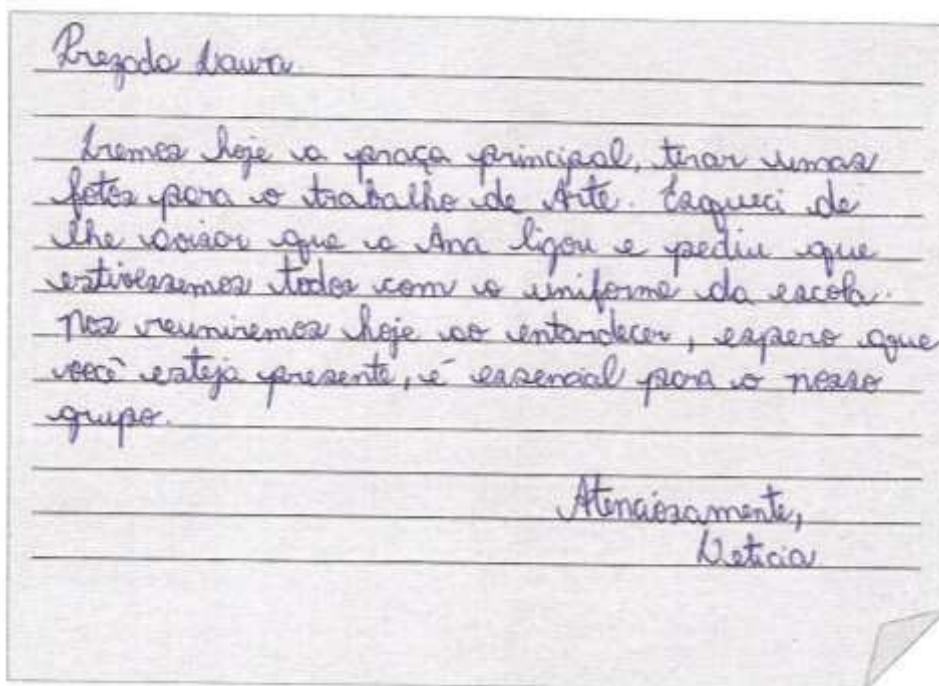 Prezada Laura.
Iremos hoje a praça principal, tirar umas
fotos para o trabalho de Arte. Esqueci de
lhe avisar que a Ana ligou e pediu que
estivessemos todos com o uniforme da escola.
Nos reuniremos hoje ao entardecer, espero que
você esteja presente, é essencial para o nosso
grupo.
Atenciosamente,
Leticia